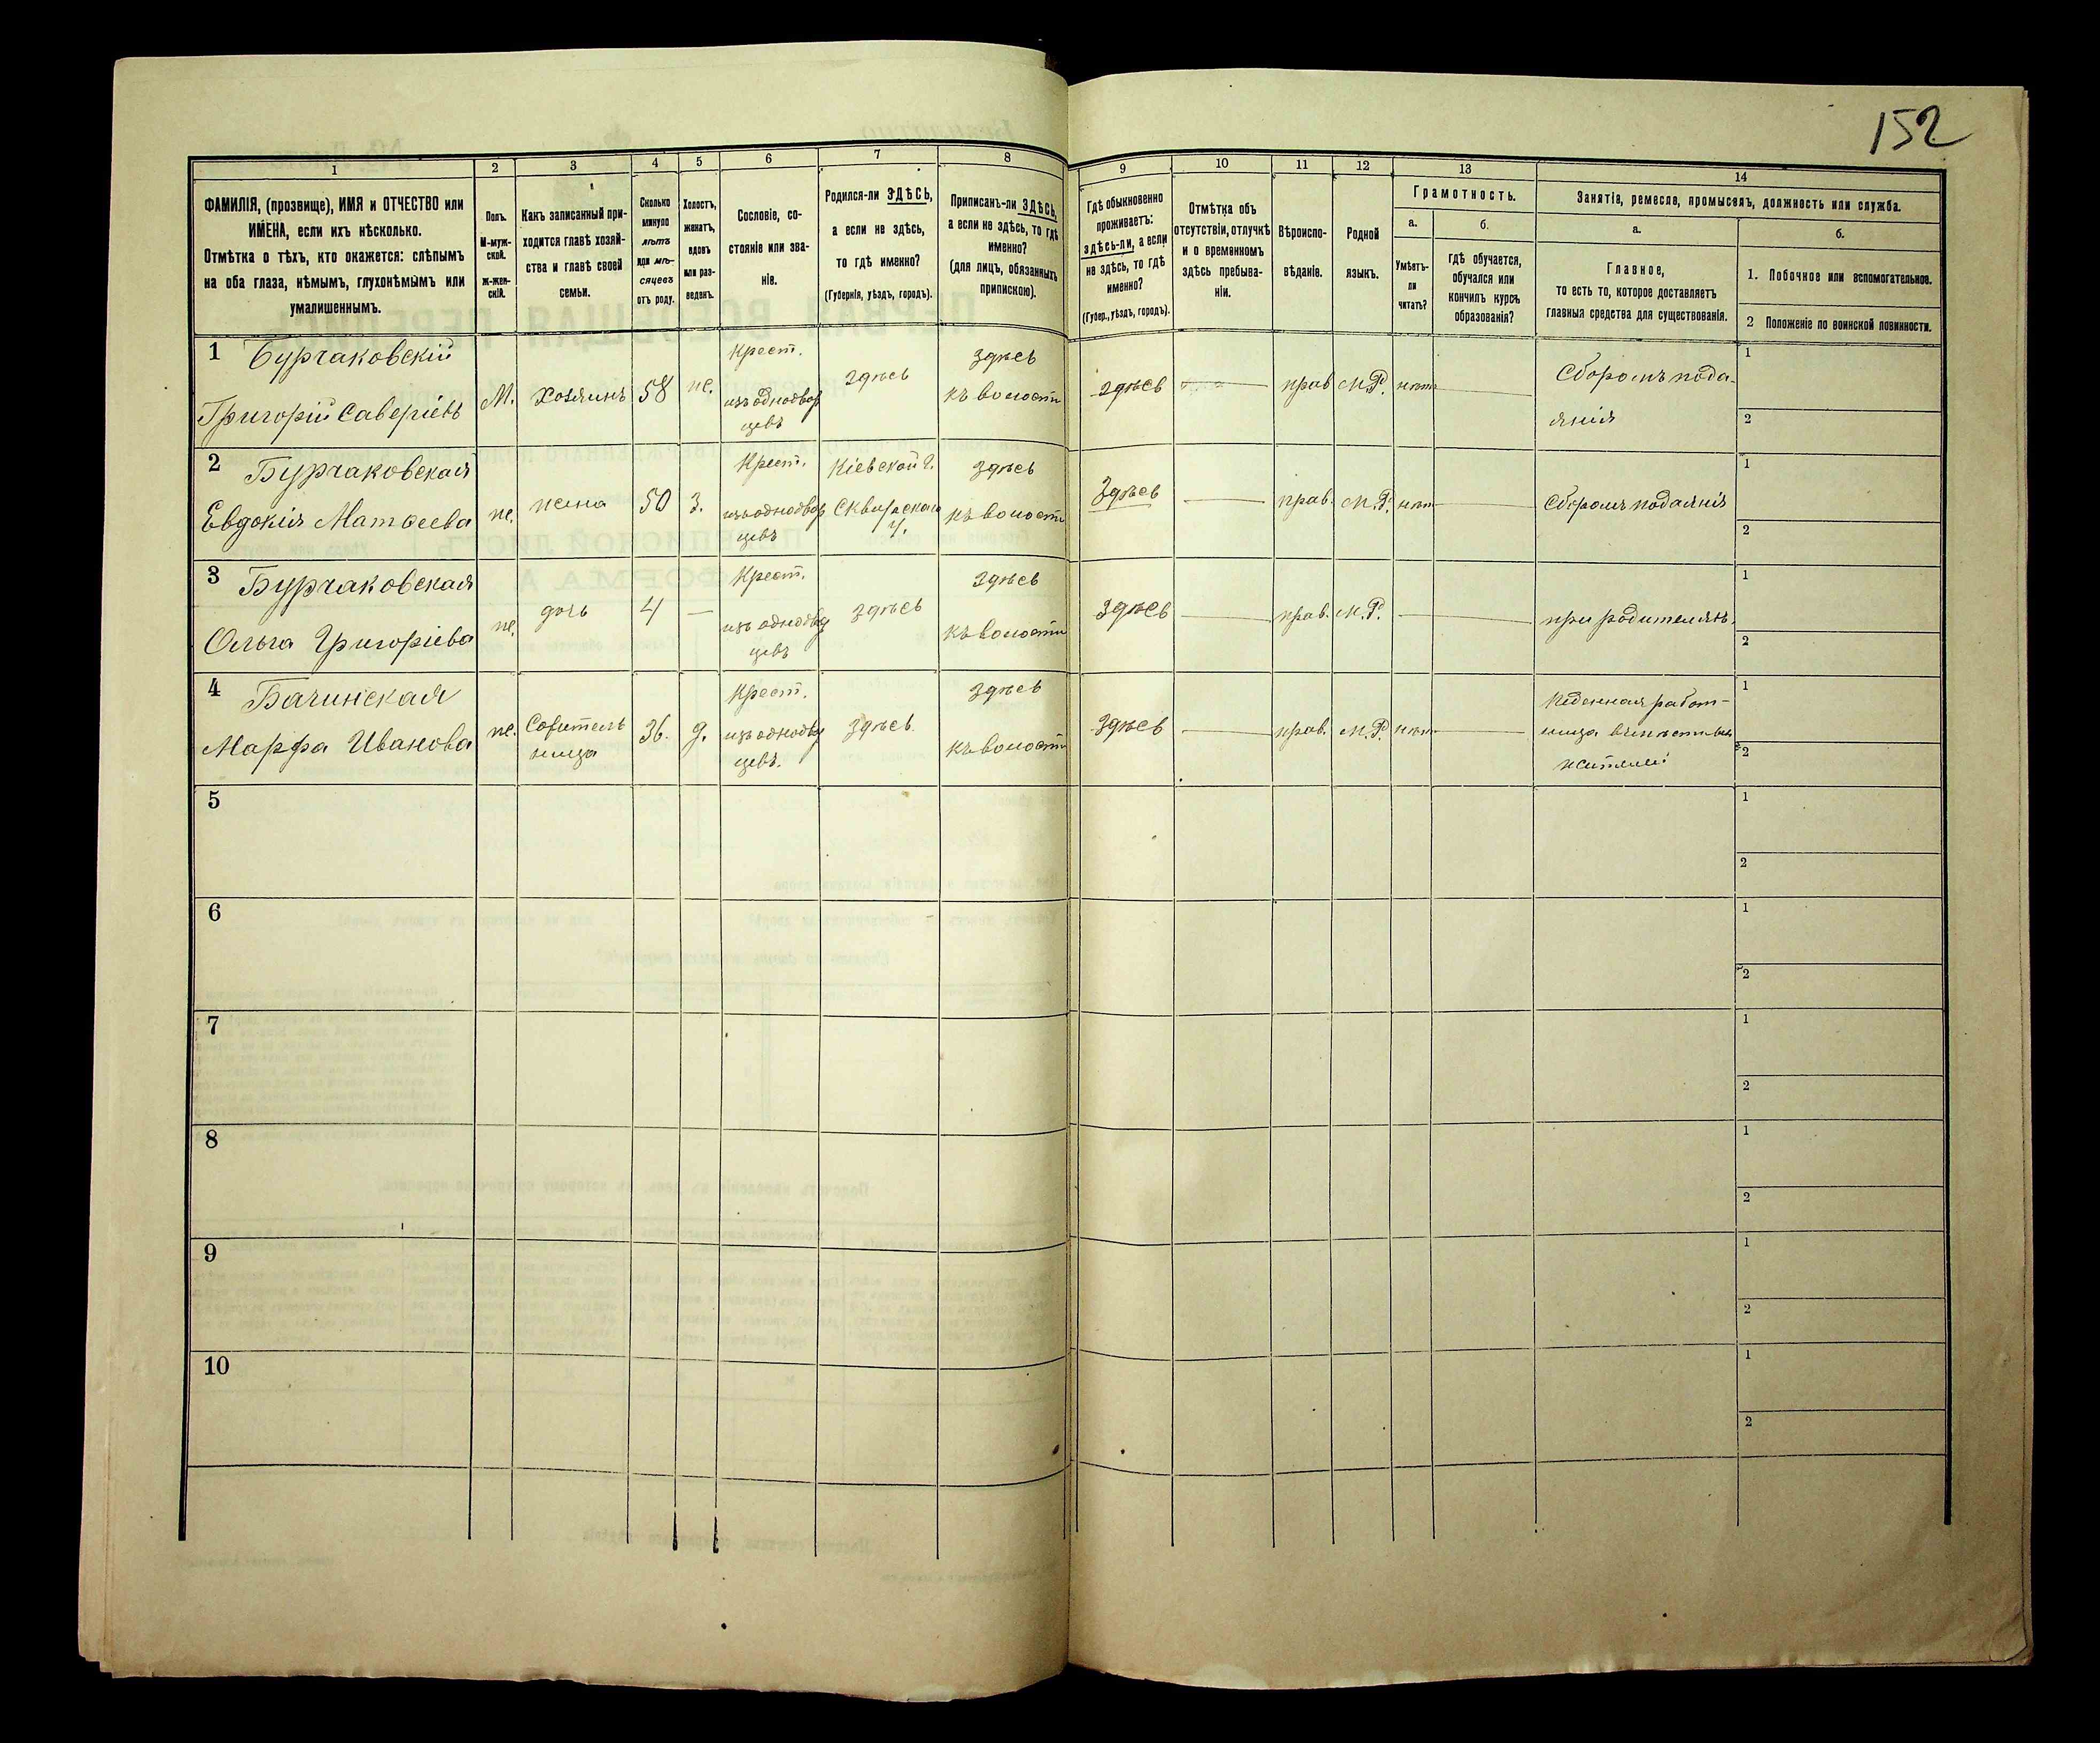 152
1
2
3
4
5
6
7
8
9
10
11
12
13
14
ФАМИЛІЯ, (прозвище), ИМЯ и ОТЧЕСТВО или
ИМЕНА, если ихъ нѣсколько.
Отмѣтка о тѣхъ, кто окажется: слѣпымъ
на оба глаза, нѣмымъ, глухонѣмымъ или
умалишеннымъ.
Полъ.
М-муж-
ской.
ж-жен-
скій.
Какъ записанный при-
ходится главѣ хозяй-
ства и главѣ своей
семьи.
Сколько
минуло
лѣтъ
или мѣ-
сяцевъ
отъ роду.
Холостъ,
женатъ,
вдовъ
или раз-
веденъ.
Сословіе, со-
стояніе или зва-
ніе.
Родился-ли ЗДѢСЬ,
а если не здѣсь,
то гдѣ именно?
(Губернія, уѣздъ, городъ).
Приписанъ-ли ЗДѢСЬ,
а если не здѣсь, то гдѣ
именно?
(для лицъ, обязанныхъ
припискою).
Гдѣ обыкновенно
проживаетъ:
здѣсь-ли, а если
не здѣсь, то гдѣ
именно?
(Губер., уѣздъ, городъ).
Отмѣтка объ
отсутствіи, отлучкѣ
и о временномъ
здѣсь пребыва-
ніи.
Вѣроиспо-
вѣданіе.
Родной
языкъ.
Грамотность.
а.
Умѣетъ-
ли
читать?
б.
гдѣ обучается,
обучался или
кончилъ курсъ
образованія?
Занятія, ремесла, промыселъ, должность или служба.
а.
Главное,
то есть то, которое доставляетъ
главныя средства для существованія.
б.
1. Побочное или вспомогательное.
2 Положеніе по воинской повинности.
1 Бурчаковскій
Григорій Саверіевъ
М.
Хозяинъ
58
же.
Крест.
изъ однодвор
цевъ
здѣсь
здѣсь
къ волости
здѣсь
прав
М.Р.
нѣтъ
Сборомъ пода-
янія
1
2
2 Бурчаковская
Евдокія Матѳеева
же.
жена
50
з.
Крест.
изъ однодвор
цевъ
Кіевской г.
Сквирскаго
у.
здѣсь
къ волости
Здѣсь
прав.
М.Р.
нѣтъ
Сборомъ подаянія
1
2
3 Бурчаковская
Ольга Григоріева
же.
дочь
4
Крест.
изъ однодвор
цевъ
здѣсь
здѣсь
къ волости
Здѣсь
прав.
М.Р.
при родителяхъ.
1
2
4 Бачинская
Марфа Иванова
же.
Сожитель
ница
36.
д.
Крест.
изъ однодвор
цевъ.
Здѣсь
здѣсь
къ волости
Здѣсь
прав.
М.Р.
нѣтъ
Поденная работ-
ница
жителей
1
2
5
1
2
6
1
2
7
1
2
8
1
2
9
1
2
10
1
2